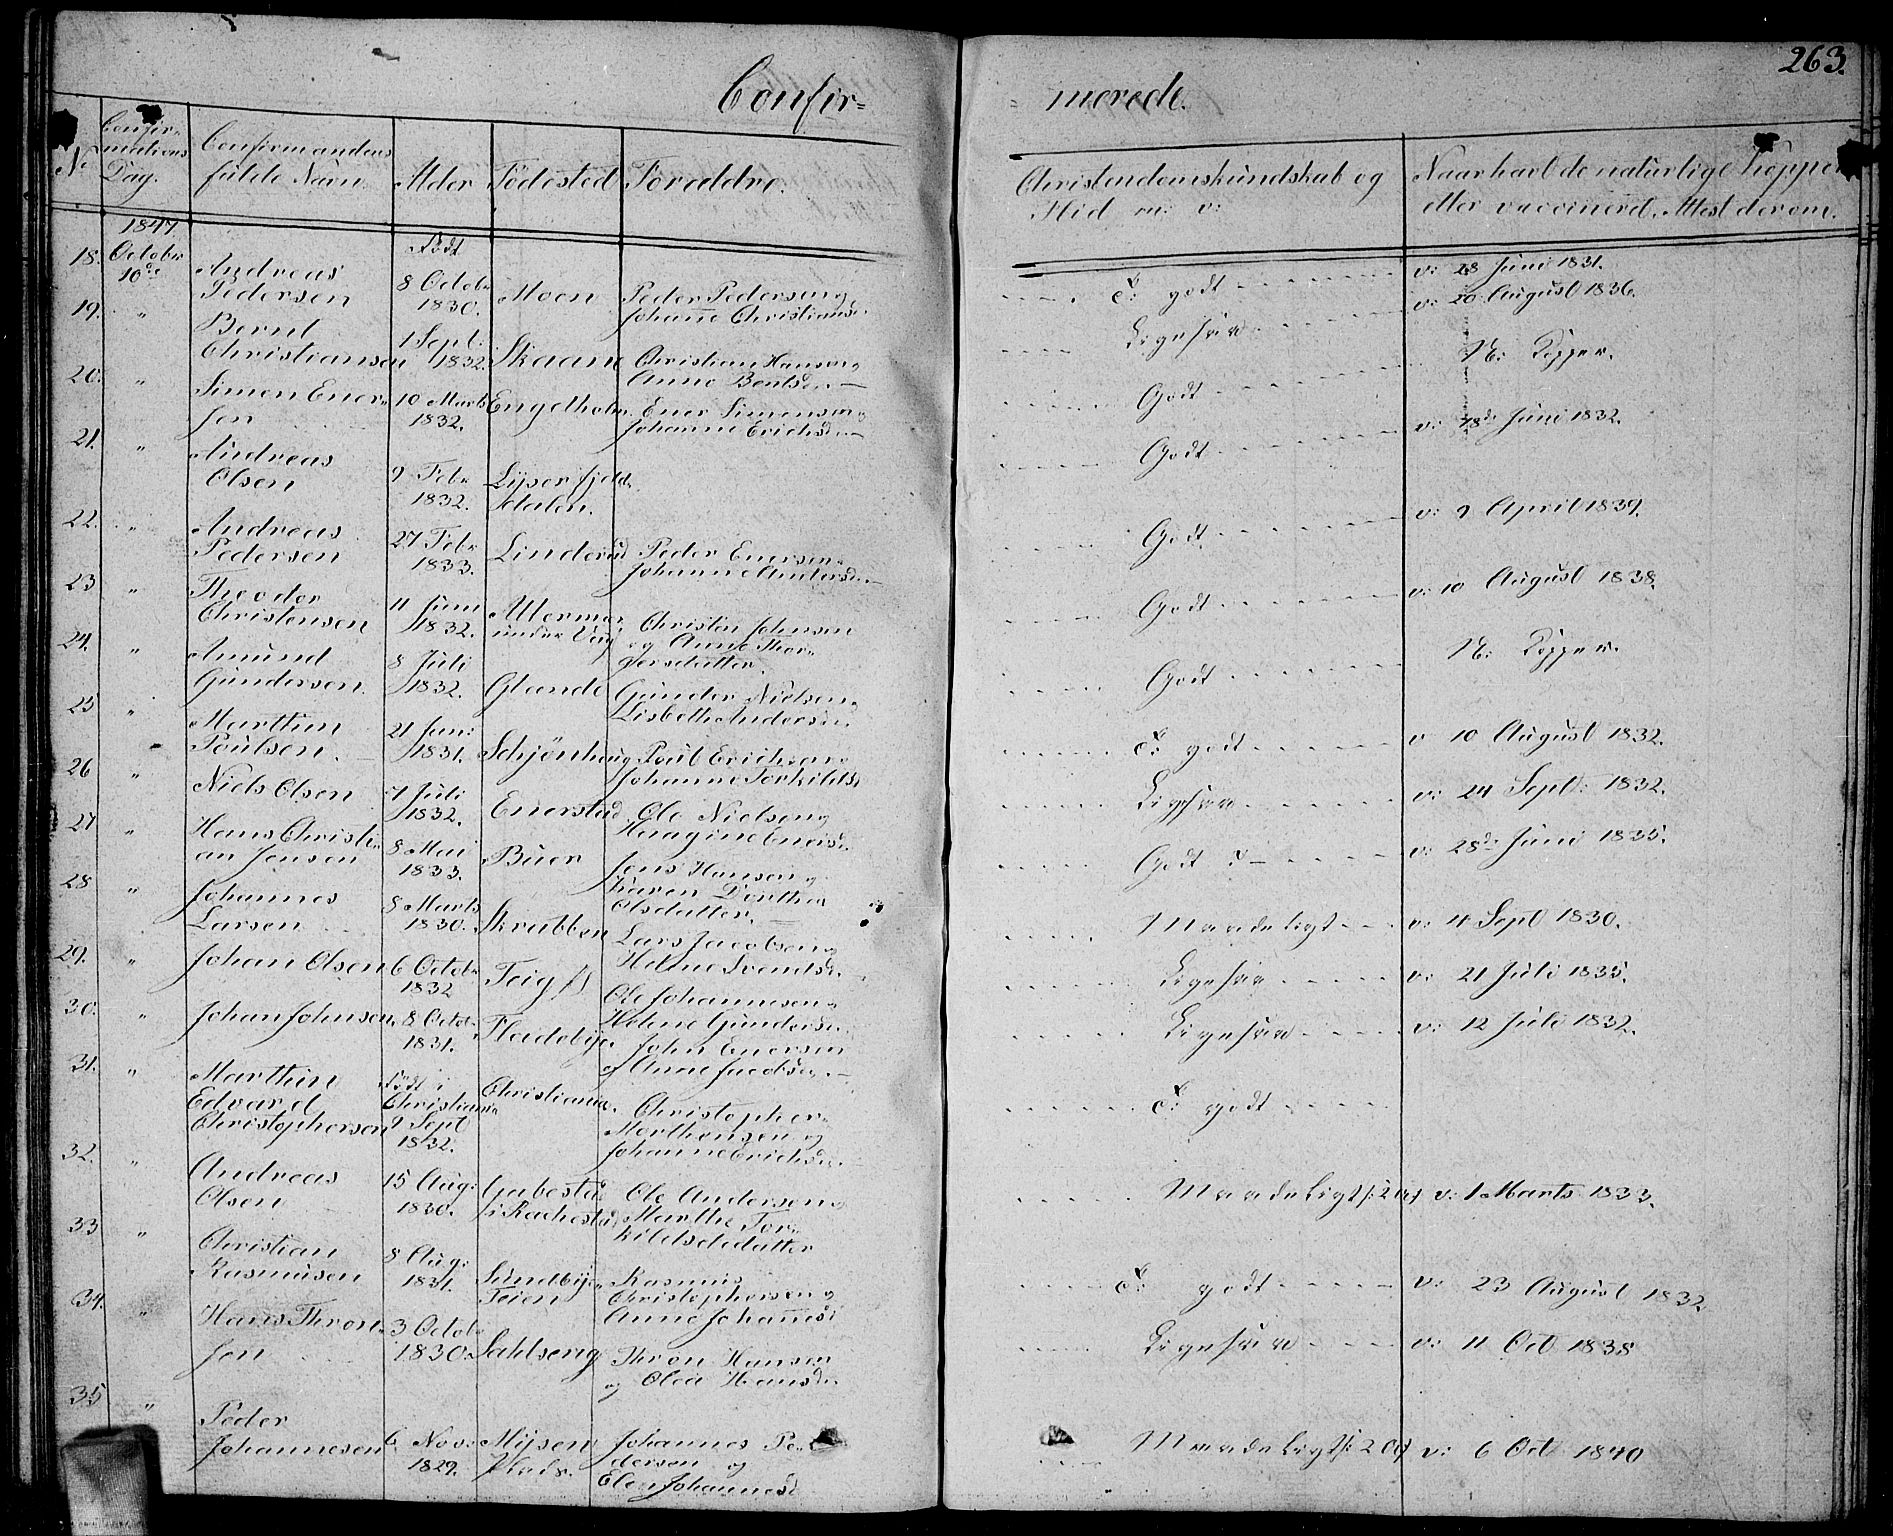 263.
Confir=
= merede.
No
Confir-
mations
Dag.
Confirmandens
fulde Navn
Alder
Fødested
Forældre.
Christendomskundskab og
Flid m: v:
Naar havt de naturlige Kopper
eller vaccineret, Attest derom.
1847
18. October
10de
Andreas
Pedersen
Født
8 Octobr
1830.
Moen
Peder Pedersen og
Johanne Christiansd.
T: godt
v: 28 Juni 1831.
19. "
Bernt
Christiansen
1 Sept:
1832.
Skaane
Christian Hansen og
Anne Bentsd.
Ligesaa
v: 20 August 1836.
20. "
Simen Ener-
sen
10 Marts
1832.
Engelholm
Ener Simensen og
Johanne Erichsd.
Godt
N: Kopper.
21. "
Andreas
Olsen
9 Febr
1832.
Lyserfjeld
dalen.
Godt
v: 18de Juni 1832.
22. "
Andreas
Pedersen
27 Febr
1833.
Linderud
Peder Enersen og
Johanne Andersd.
Godt
v: 9 April 1839.
23 "
Theodor
Christensen
11 Juni
1832.
under
Christen Johnsen
og Anne Thor-
gersdatter.
Godt
v: 10 August 1838.
24. "
Amund
Gundersen
8 Juli
1832.
Glende
Gunder Nielsen og
Lisbeth Andersd.
Godt
N: Kopper.
25 "
Marthin
Poulsen.
21 Juni
1831.
Schjønhaug
Poul Erichsen og
Johanne Torkildsd
T: godt
v 10 August 1832.
26 "
Niels Olsen
7 Juli
1832.
Enerstad
Ole Nielsen og
Ligesaa
v: 24 Sept: 1832.
27 "
Hans Christi-
an Jensen
8 Mai
1833.
Buer
Jens Hansen og
Karen Dorthea
Olsdatter.
Godt
v: 28de Juni 1835.
28 "
Johannes
Larsen
8 Marts
1830.
Skrubben
Lars Jacobsen og
Helene Svendsd.
Maadeligt
v: 4 Sept 1830.
29. "
Johan Olsen
6 Octobr
1832
Teig
Ole Johannesen og
Helene Gundersd.
Ligesaa
v: 21 Juli 1835.
30. "
Johan Johnsen
8 Octobr
1831.
Fladebye
John Enersen
og Anne Jacobsd.
Ligesaa
v: 12 Juli 1832.
31. "
Marthin
Edvard
Christophersen
Født i
Christiania
9 Sept
1832.
Christiania.
Christopher
Marthensen og
Johanne Erichsd.
T: godt
32. "
Andreas
Olsen
15 Aug:
1830.
Gabestad
i Rachestad
Ole Andersen og
Marthe Tor-
kildsdedatter
Maadeligt
v: 1 Marts 1833.
33 "
Christian
Rasmusen
8 Aug:
1831.
Sundbye
Teien
Rasmus
Christophersen og
Anne Johannesd
T: godt
v: 23 August 1832.
34. "
Hans Thron-
sen
3 Octobr
1830.
Sahlserig
Thron Hansen
og Olea Hansd.
Ligesaa
v: 11 Oct 1838
35 "
Peder
Johannesen
6 Nov:
1829.
Mysen
Plads.
Johannes Pe-
dersen og
Elen Johannesd
Maadeligt
v: 6 Oct 1840